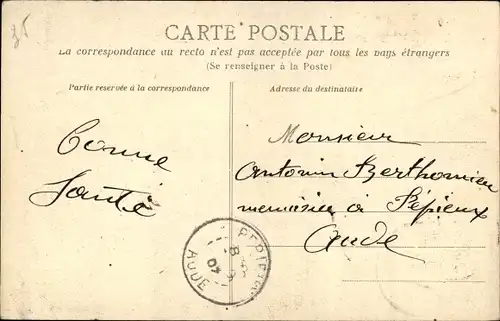 CARTE POSTALE
La correspondance au recto n'est pas acceptée par tous les pays étrangers
(Se renseigner à la Poste)
Partie reservée à la correspondance
Adresse du destinataire
Bonne
Santé
Monsieur
Antonin Berthomieu
menuisier à Pépieux
Aude
PEPIEUX
AUDE